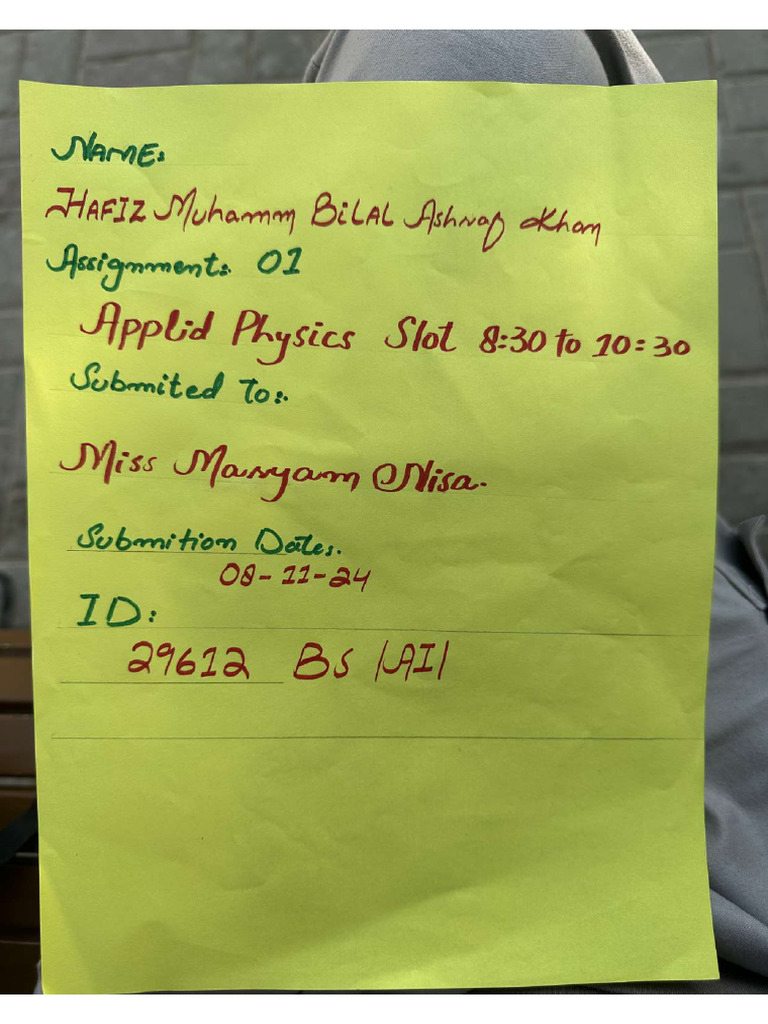 NAME:
HAFIZ Muhamm BiLAL Ashraf Khan
Assignment: 01
Applid Physics Slot 8:30 to 10:30
Submited To:
Miss Maryam Nisa.
Submition Dates.
08-11-24
ID:
29612 BS |AI|